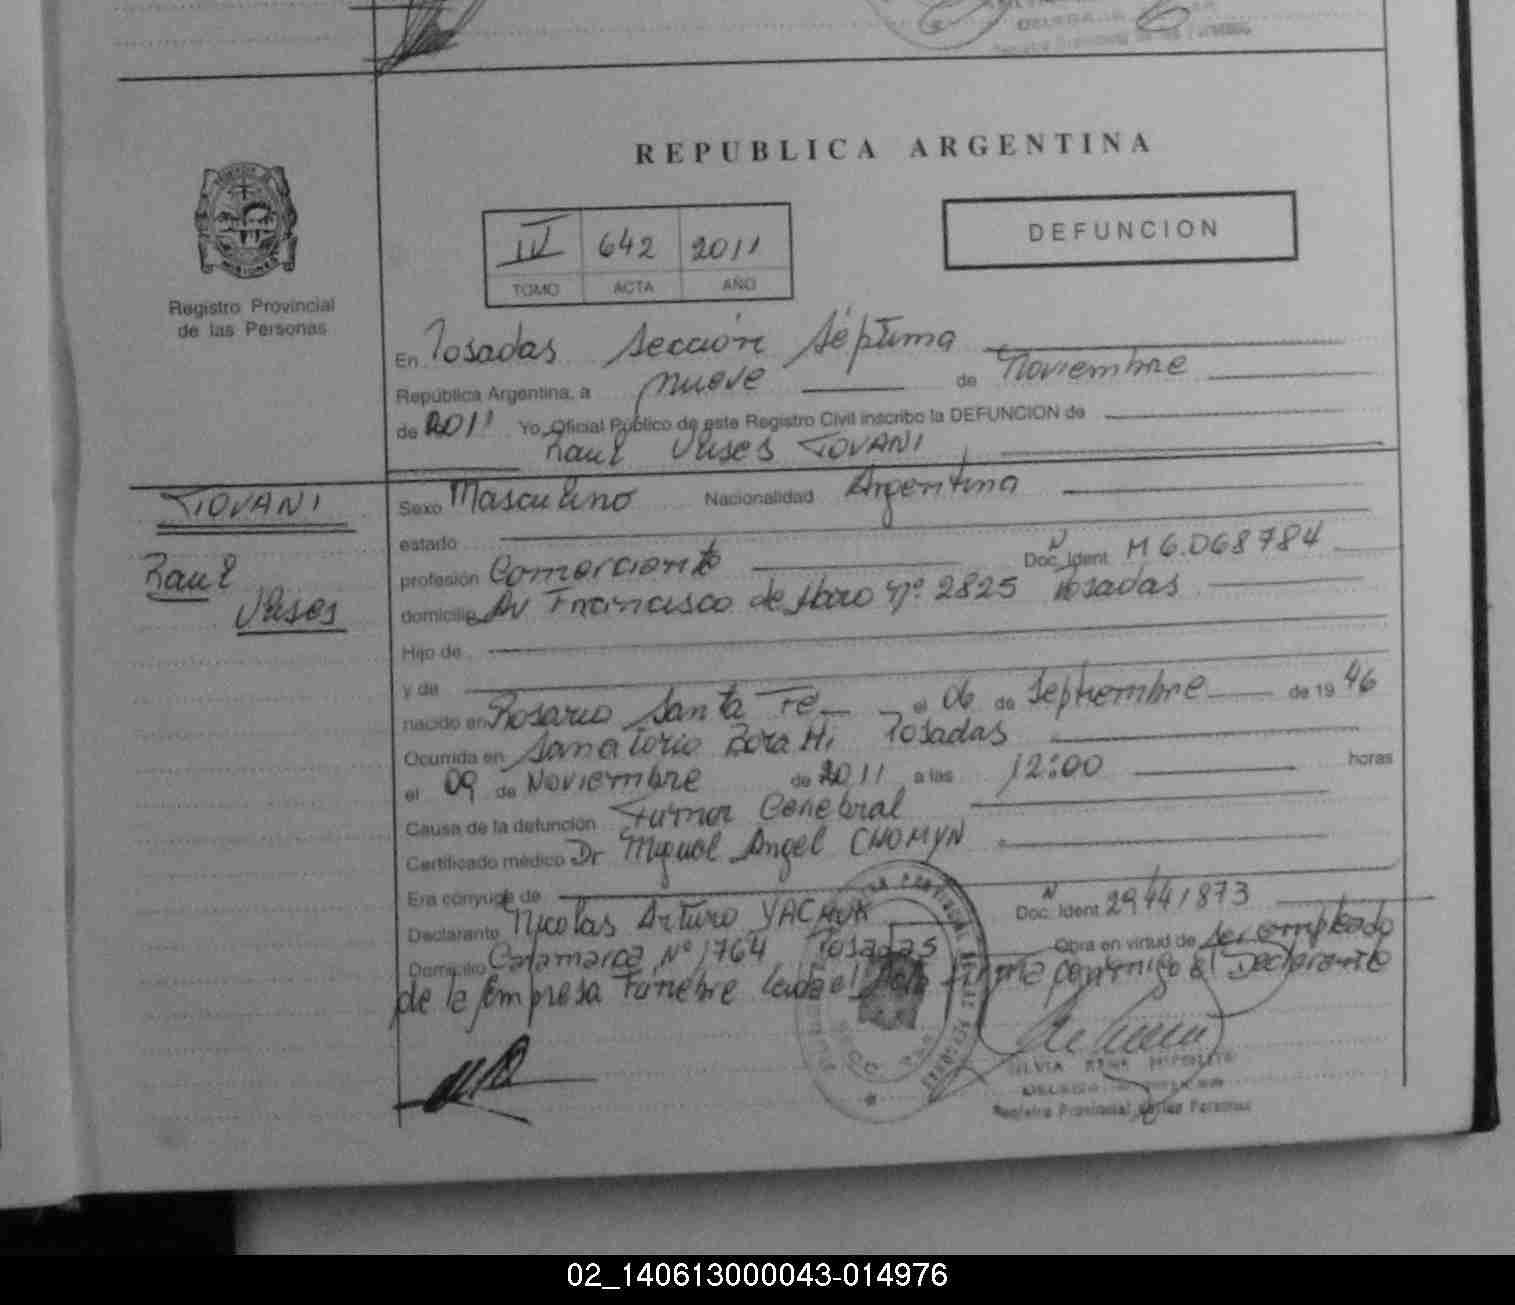 REPUBLICA ARGENTINA
MISIONES
Registro Provincial
de las Personas
IV 642 2011
TOMO ACTA AÑO
DEFUNCION
En Posadas Sección Séptima
República Argentina, a nueve de Noviembre
de 2011 Yo, Oficial Público de este Registro Civil inscribo la DEFUNCION de
Raul Ulises TOVANI
TOVANI
Raul
Ulises
Sexo Masculino Nacionalidad Argentina
estado
profesión Comerciante Doc. Ident. M 6.068784
domicilio Av Francisco de Haro Nº 2825 Posadas
Hijo de
y de
nacido en Rosario Santa Fe el 06 de Septiembre de 1946
Ocurrida en Sanatorio Posadas
el 09 de Noviembre de 2011 a las 12:00 horas
Causa de la defunción Tumor Cerebral
Certificado médico Dr Miguel Angel CHOMYN
Era cónyuge de
Declarante Nicolas Arturo YACHUK Doc. Ident. 29441873
Domicilio Catamarca Nº 1764 Posadas Obra en virtud de ser empleado
de la Empresa Funebre Leida el Acta firma conmigo el Declarante
Registro Provincial de las Personas
02_140613000043-014976